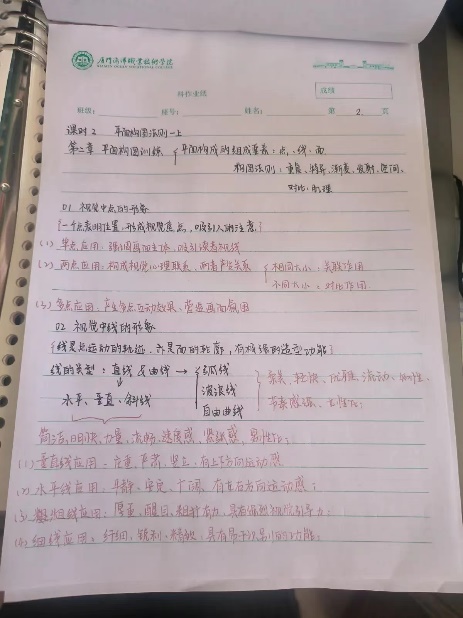 厦门海洋职业技术学院
作业纸
成绩
班级: 座号: 姓名: 第 2 页
课时2 平面构图法则—上
第二章 平面构图训练 平面构成的组成要素:点、线、面
构图法则:重复、特异、渐变、发射、空间、
对比、肌理
01 视觉中点的形象
一个点表明位置,形成视觉焦点,吸引人的注意
(1) 单点应用:强调画面主体,吸引读者视线
(2) 两点应用:构成视觉心理联系,两者产生关系
相同大小:关联作用
不同大小:对比作用
(3) 多点应用:产生多点互动效果、营造画面氛围
02 视觉中线的形象
线是点运动的轨迹,亦是面的轮廓,有极强的造型功能
线的类型:直线&曲线→弧线
波浪线
自由曲线
水平、垂直、斜线
柔美、轻快、优雅、流动、
节奏感强、女性化;
简洁、明快、力量、流畅、速度感、紧张感、男性化;
(1) 垂直线应用:庄重、严肃、坚立、有上下方向运动感
(2) 水平线应用:平静、安定、广阔、有左右方向运动感;
(3) 粗线应用:厚重、醒目、粗犷有力、具有强烈
(4) 细线应用:纤细、锐利、精致、具有